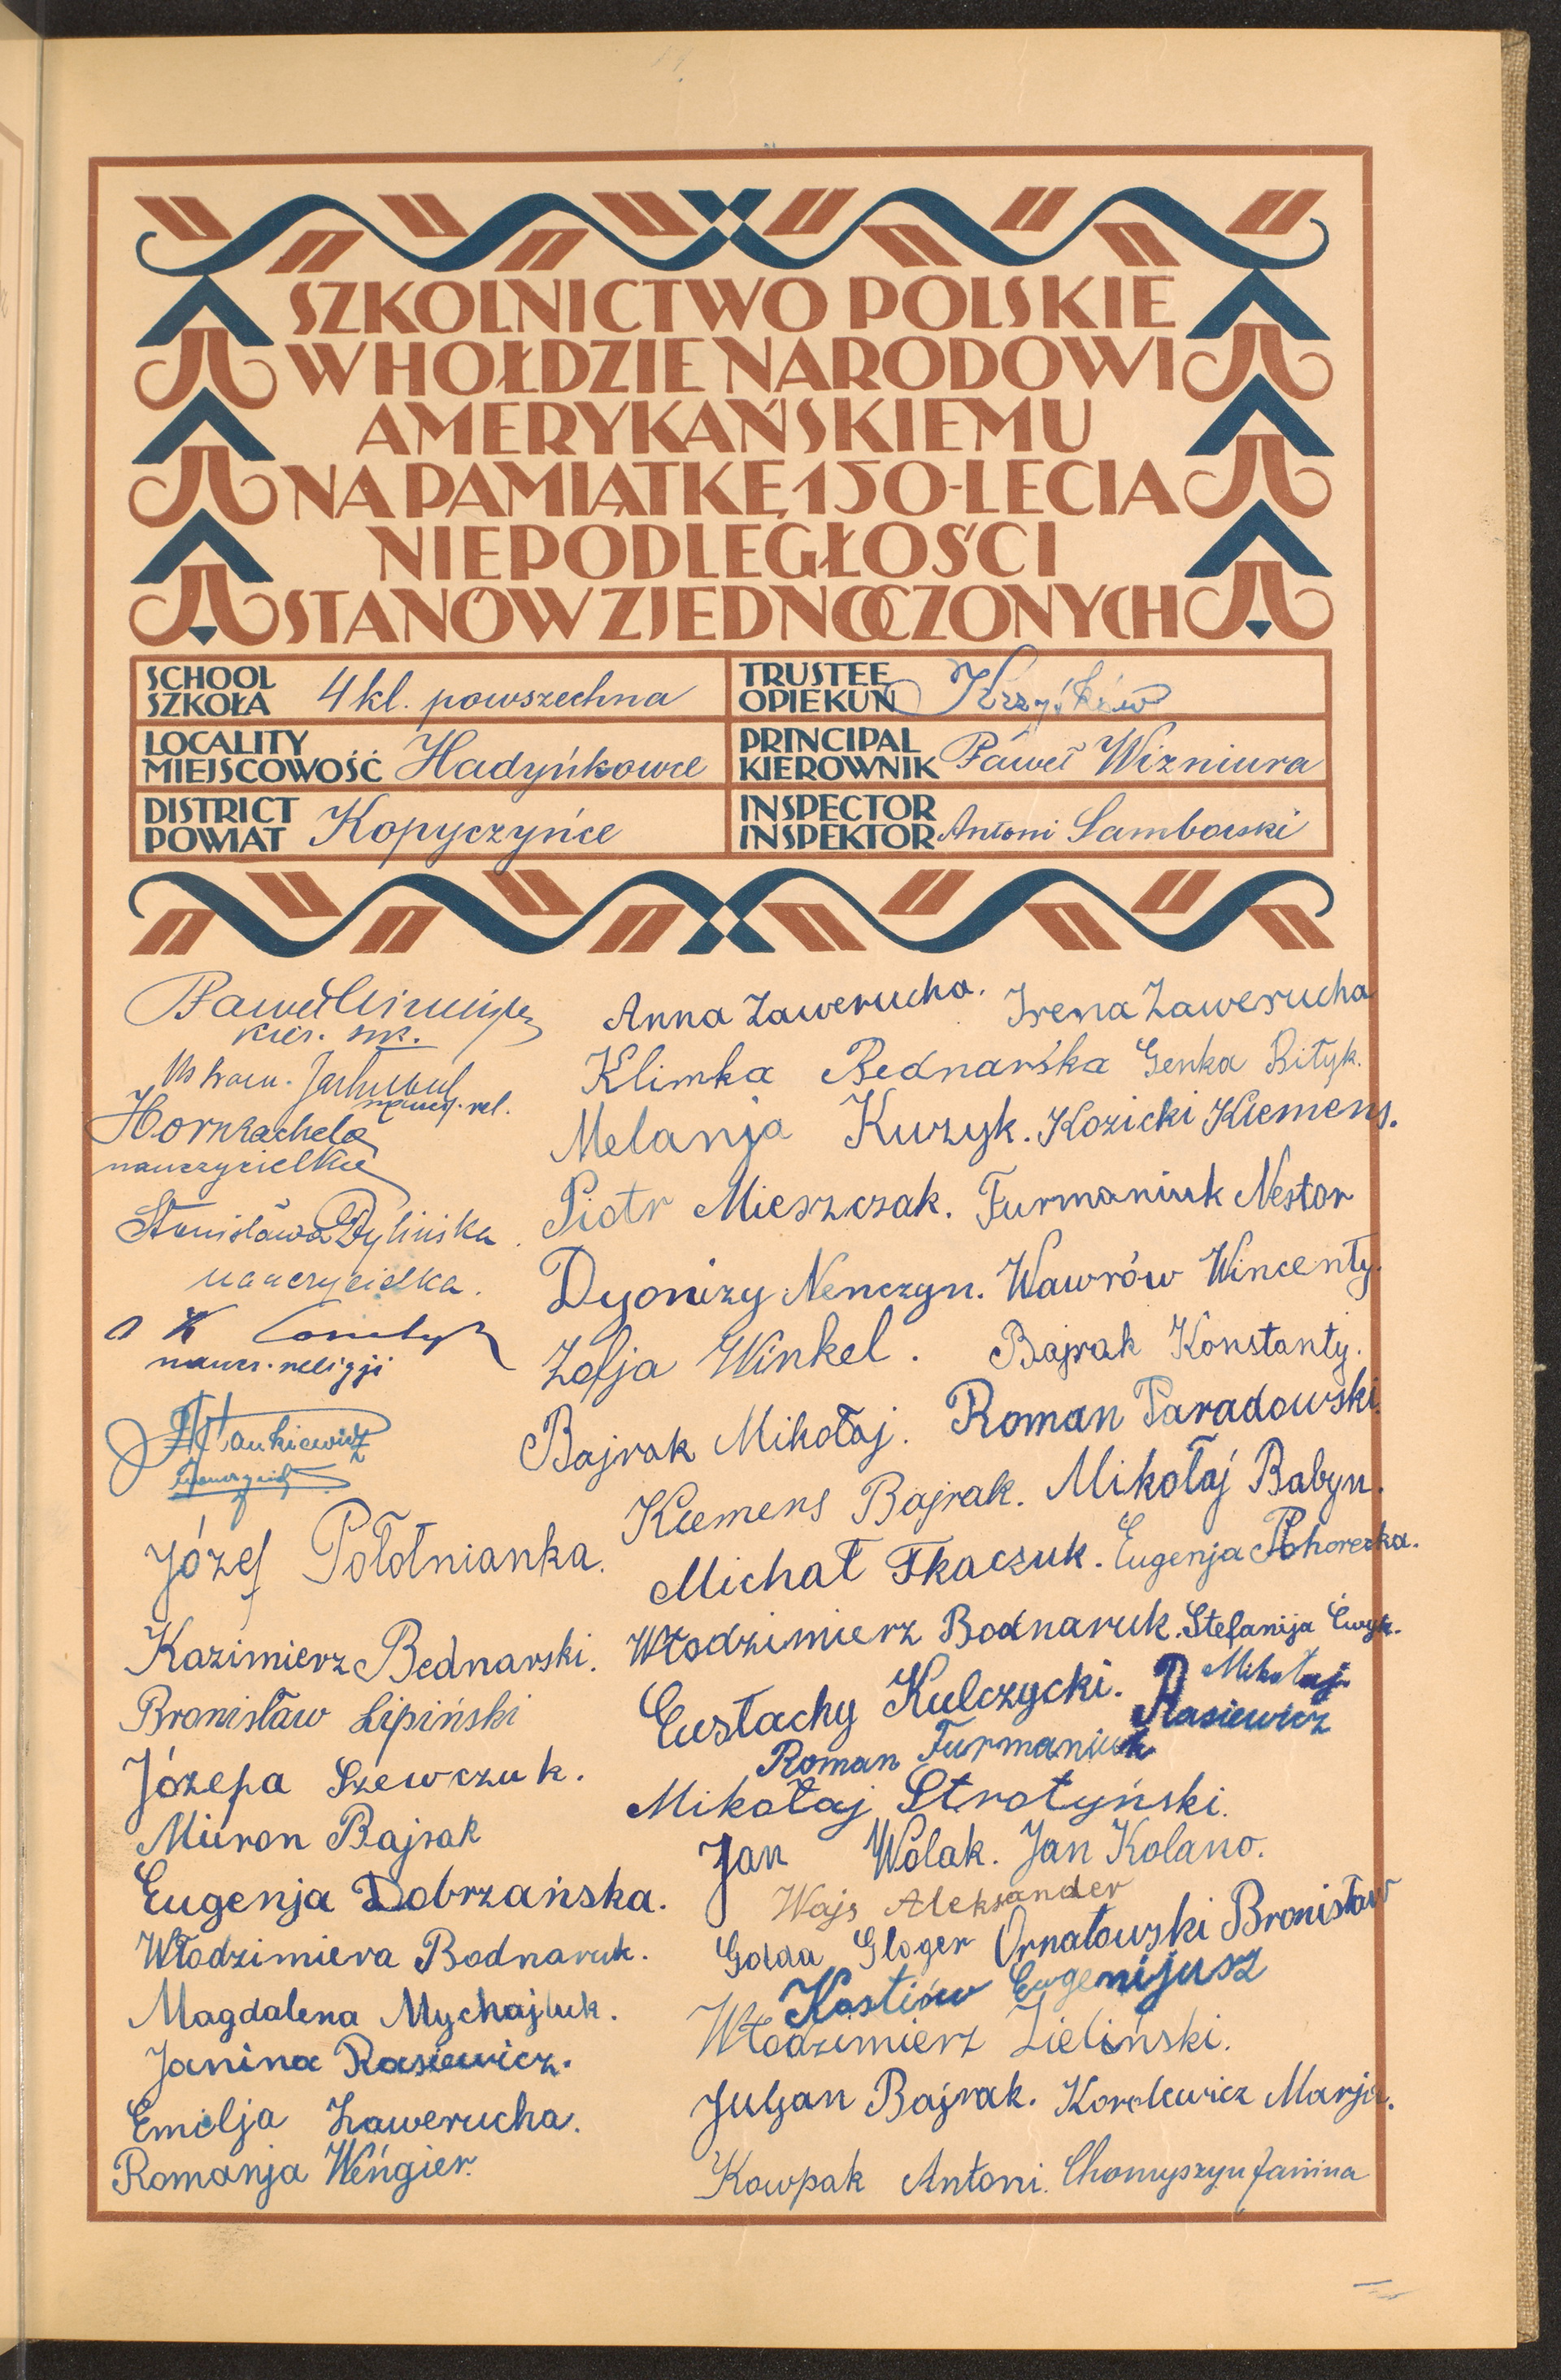 SZKOLNICTWO POLSKIE
W HOŁDZIE NARODOWI
AMERYKAŃSKIEMU
NA PAMIĄTKĘ 150-LECIA
NIEPODLEGŁOŚCI
STANÓW ZJEDNOCZONYCH
SCHOOL
SZKOŁA 4 kl. powszechna
TRUSTEE
OPIEKUN
LOCALITY
MIEJSCOWOŚĆ Hadyńkowce
PRINCIPAL
KIEROWNIK Paweł Wizniura
DISTRICT
POWIAT Kopyczyńce
INSPECTOR
INSPEKTOR Antoni Samborski
Paweł
kier.
naucz. rel.
Horn Rachela
nauczycielka
Stanisława Dylińska
nauczycielka.
naucz. religji
Józef Połotnianka.
Kazimierz Bednarski.
Bronisław Lipiński
Józefa Szewczuk.
Miuron Bajrak
Eugenja Dobrzańska.
Włodzimiera Bodnaruk.
Magdalena Mychajluk.
Janina Rasiewicz.
Emilja Zawerucha.
Romanja Wéngier.
Anna Zawerucha. Irena Zawerucha
Klimka Bednarśka Genka Bityk.
Melanja Kuzyk. Kozicki Klemens.
Piotr Mieszczak. Furmaniuk Nestor
Dyonizy Nenczyn. Wawrów Wincenty.
Zofja Winkel. Bajrak Konstanty.
Bajrak Mikołaj. Roman Paradowski.
Klemens Bajrak. Mikołaj Babyn.
Michał Tkaczuk. Eugenja Pohorecka.
Włodzimierz Bodnaruk. Stefanija
Eustachy Kulczycki. Mikołaj
Rasiewicz
Roman Furmaniuk
Mikołaj Strotyński.
Jan Wolak. Jan Kolano.
Wajs Aleksander
Golda Gloger Ornatowski Bronisław
Kostiów Eugenijusz
Włodzimierz Zieliński.
Juljan Bajrak. Korolewicz Marja.
Kowpak Antoni. Chomyszyn Janina